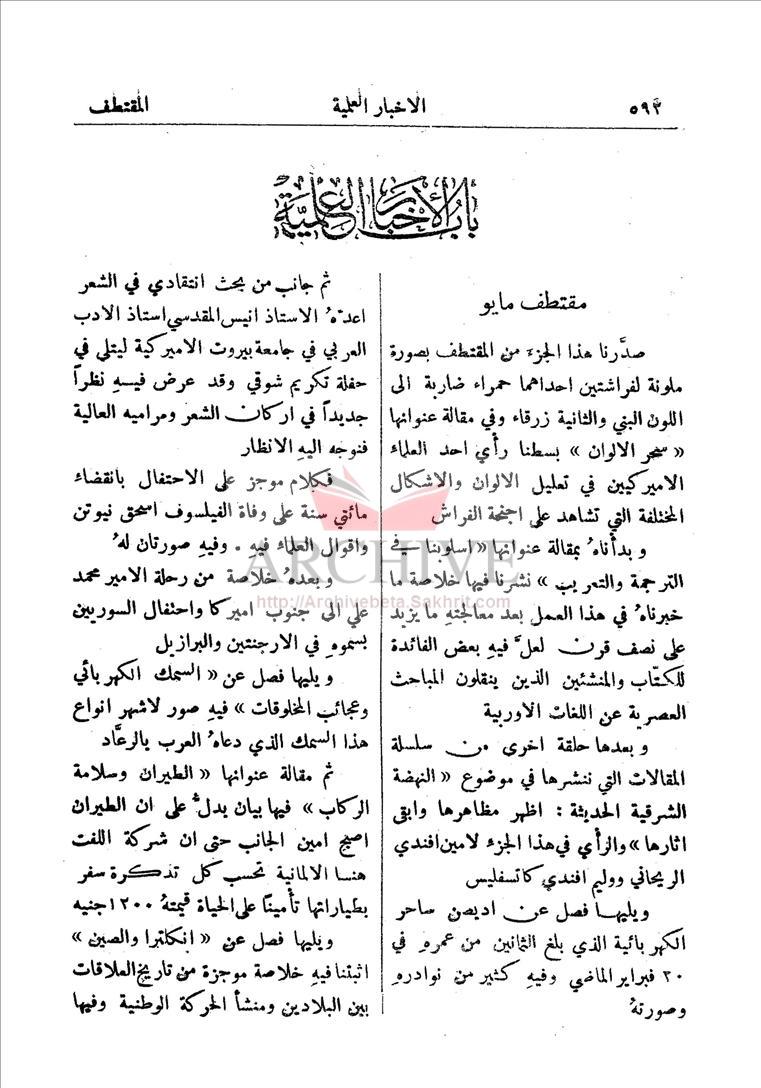 ٥٩٢ الاخبار العلمية المقتطف
باب الأخبار العلمية
مقتطف مايو
صدَّرنا هذا الجزء من المقتطف بصورة
ملونة لفراشتين احداهما حمراء ضاربة الى
اللون البني والثانية زرقاء وفي مقالة عنوانها
« سحر الالوان » بسطنا رأي احد العلماء
الاميركيين في تعليل الالوان والاشكال
المختلفة التي تشاهد على اجنحة الفراش
وبدأناهُ بمقالة عنوانها « اسلوبنا في
الترجمة والتعريب » نشرنا فيها خلاصة ما
خبرناهُ في هذا العمل بعد معالجتهِ ما يزيد
على نصف قرن لعلَّ فيهِ بعض الفائدة
للكتّاب والمنشئين الذين ينقلون المباحث
العصرية عن اللغات الاوربية
وبعدها حلقة اخرى من سلسلة
المقالات التي ننشرها في موضوع « النهضة
الشرقية الحديثة : اظهر مظاهرها وابقى
اثارها » والرأي في هذا الجزء لامين افندي
الريحاني ووليم افندي كاتسفليس
ويليها فصل عن اديصن ساحر
الكهربائية الذي بلغ الثمانين من عمرهِ في
٢٠ فبراير الماضي وفيهِ كثير من نوادرهِ
وصورتهُ
ثم جانب من بحث انتقادي في الشعر
اعدّهُ الاستاذ انيس المقدسي استاذ الادب
العربي في جامعة بيروت الاميركية ليتلى في
حفلة تكريم شوقي وقد عرض فيسهِ نظراً
جديداً في اركان الشعر ومراميه العالية
فنوجه اليهِ الانظار
فكلام موجز على الاحتفال بانقضاء
مائتي سنة على وفاة الفيلسوف اسحق نيوتن
واقوال العلماء فيهِ . وفيهِ صورتان لهُ
وبعدهُ خلاصة من رحلة الامير محمد
علي الى جنوب اميركا واحتفال السوريين
بسموهِ في الارجنتين والبرازيل
ويليها فصل عن « السمك الكهربائي
وعجائب المخلوقات » فيهِ صور لاشهر انواع
هذا السمك الذي دعاهُ العرب بالرعَّاد
ثم مقالة عنوانها « الطيران وسلامة
الركاب » فيها بيان يدلُّ على ان الطيران
اصبح امين الجانب حتى ان شركة اللفت
هنسا الالمانية تحسب كل تذكرة سفر
بطياراتها تأميناً على الحياة قيمتهُ ١٢٠٠ جنيه
ويليها فصل عن « انكلترا والصين »
اثبتنا فيهِ خلاصة موجزة من تاريخ العلاقات
بين البلادين ومنشأ الحركة الوطنية وفيها
ARCHIVE
http://Archivebeta.Sakhrit.com